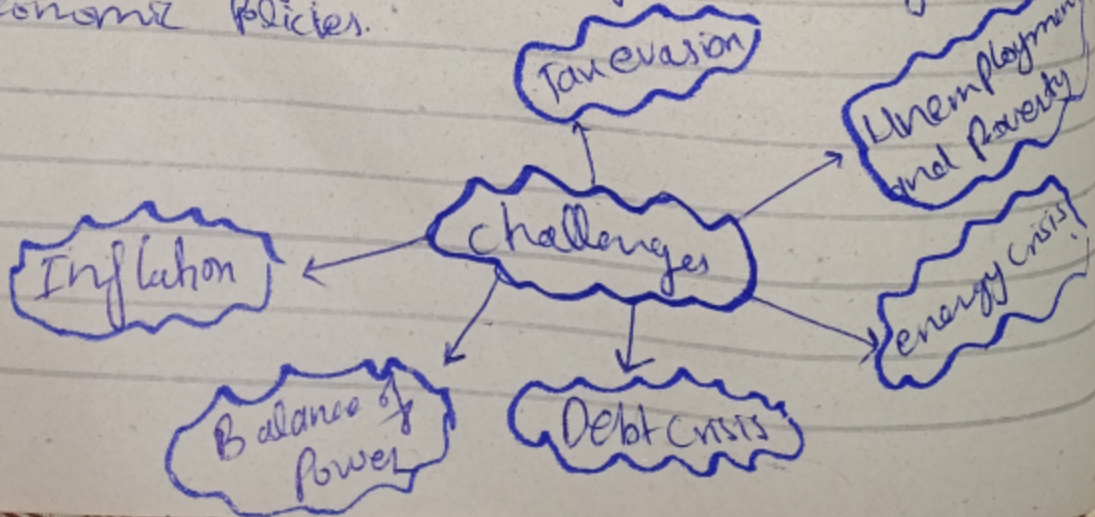 onomic Policies.
Tax evasion
Unemployment
and Poverty
Challenges
energy crisis
Inflation
Balance of
Power
Debt crisis